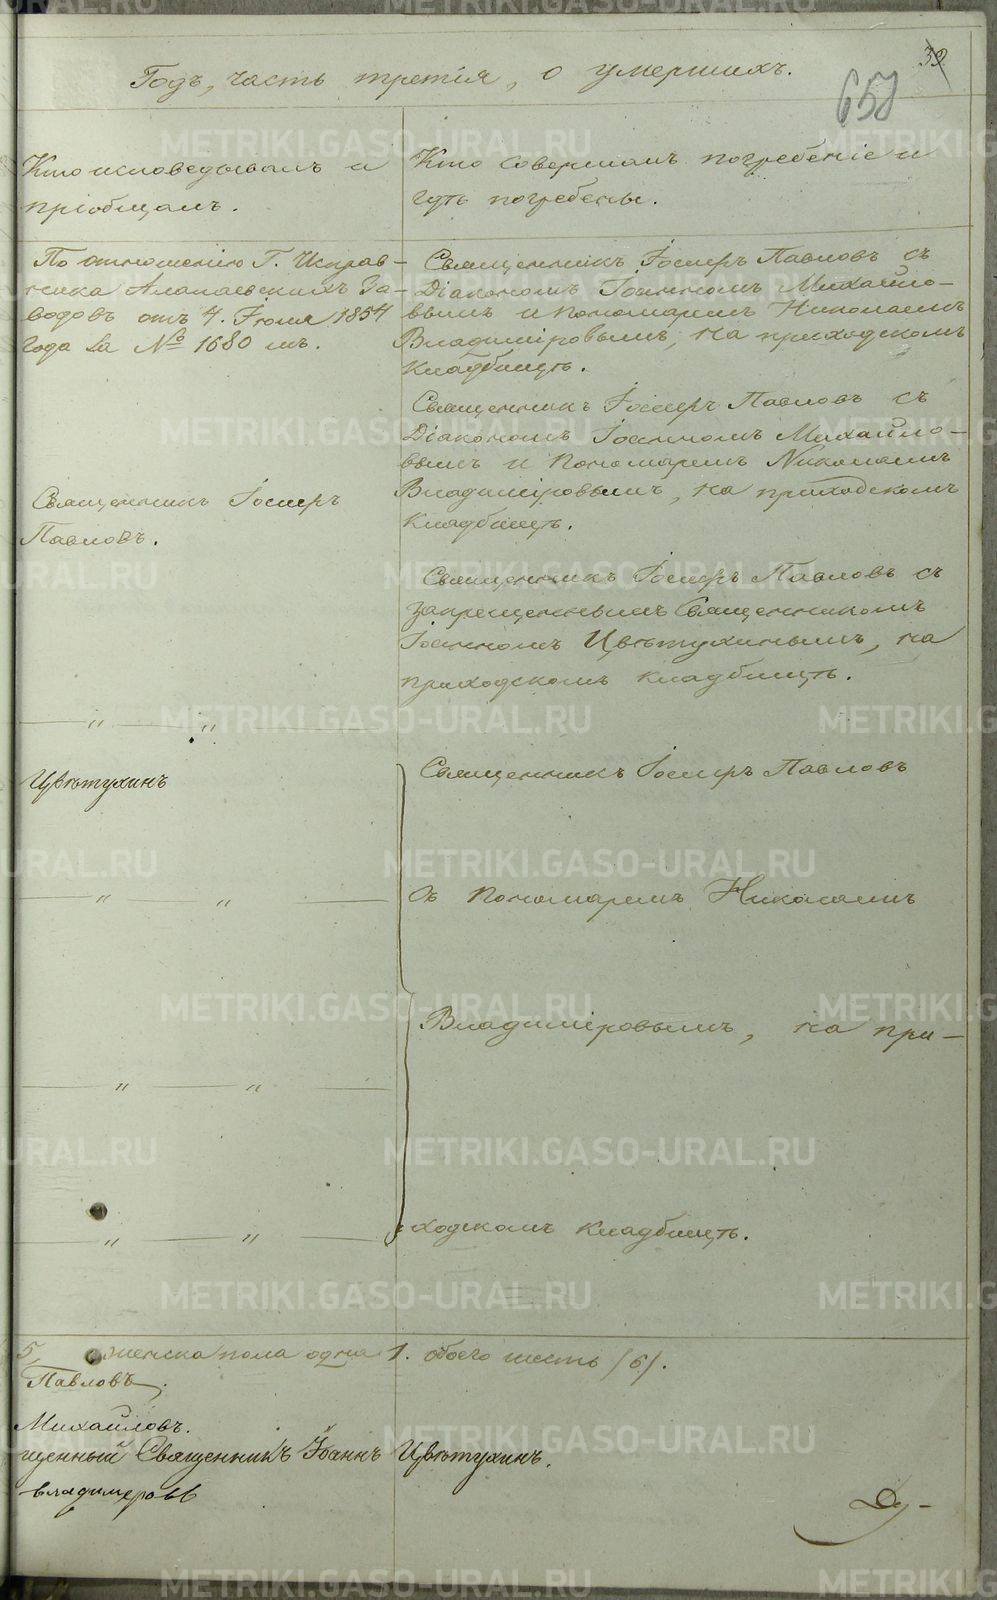 Годъ, часть третія, о умершихъ.
39
658
Кто исповедывалъ и
пріобщалъ.
Кто совершалъ погребеніе и
гдѣ погребены.
По отношенію Г. Исправ-
ника Алапаевскихъ За-
водовъ отъ 4. Іюля 1854
года за № 1680 мъ.
Священникъ Іосифъ Павловъ съ
Діакономъ Іоанномъ Михайло-
вымъ и пономаремъ Николаемъ
Владиміровымъ, на приходскомъ
кладбищѣ.
Священникъ Іосифъ Павловъ съ
Діакономъ Іоанномъ Михайло-
вымъ и пономаремъ Николаемъ
Владиміровымъ, на приходскомъ
кладбищѣ.
Священникъ Іосифъ
Павловъ.
Священникъ Іосифъ Павловъ съ
запрещеннымъ Священникомъ
Іоанномъ Цвѣтухинымъ, на
приходскомъ кладбищѣ.
— " — " —
Цвѣтухинъ
Священникъ Іосифъ Павловъ
— " — " —
съ пономаремъ Николаемъ
Владиміровымъ, на при-
— " — " —
ходскомъ кладбищѣ.
— " — " —
5, женска пола одна 1. обоего шесть (6).
Павловъ.
Михайловъ.
щенный Священникъ Іоаннъ Цвѣтухинъ.
владимеровъ
Ду-
METRIKI.GASO-URAL.RU